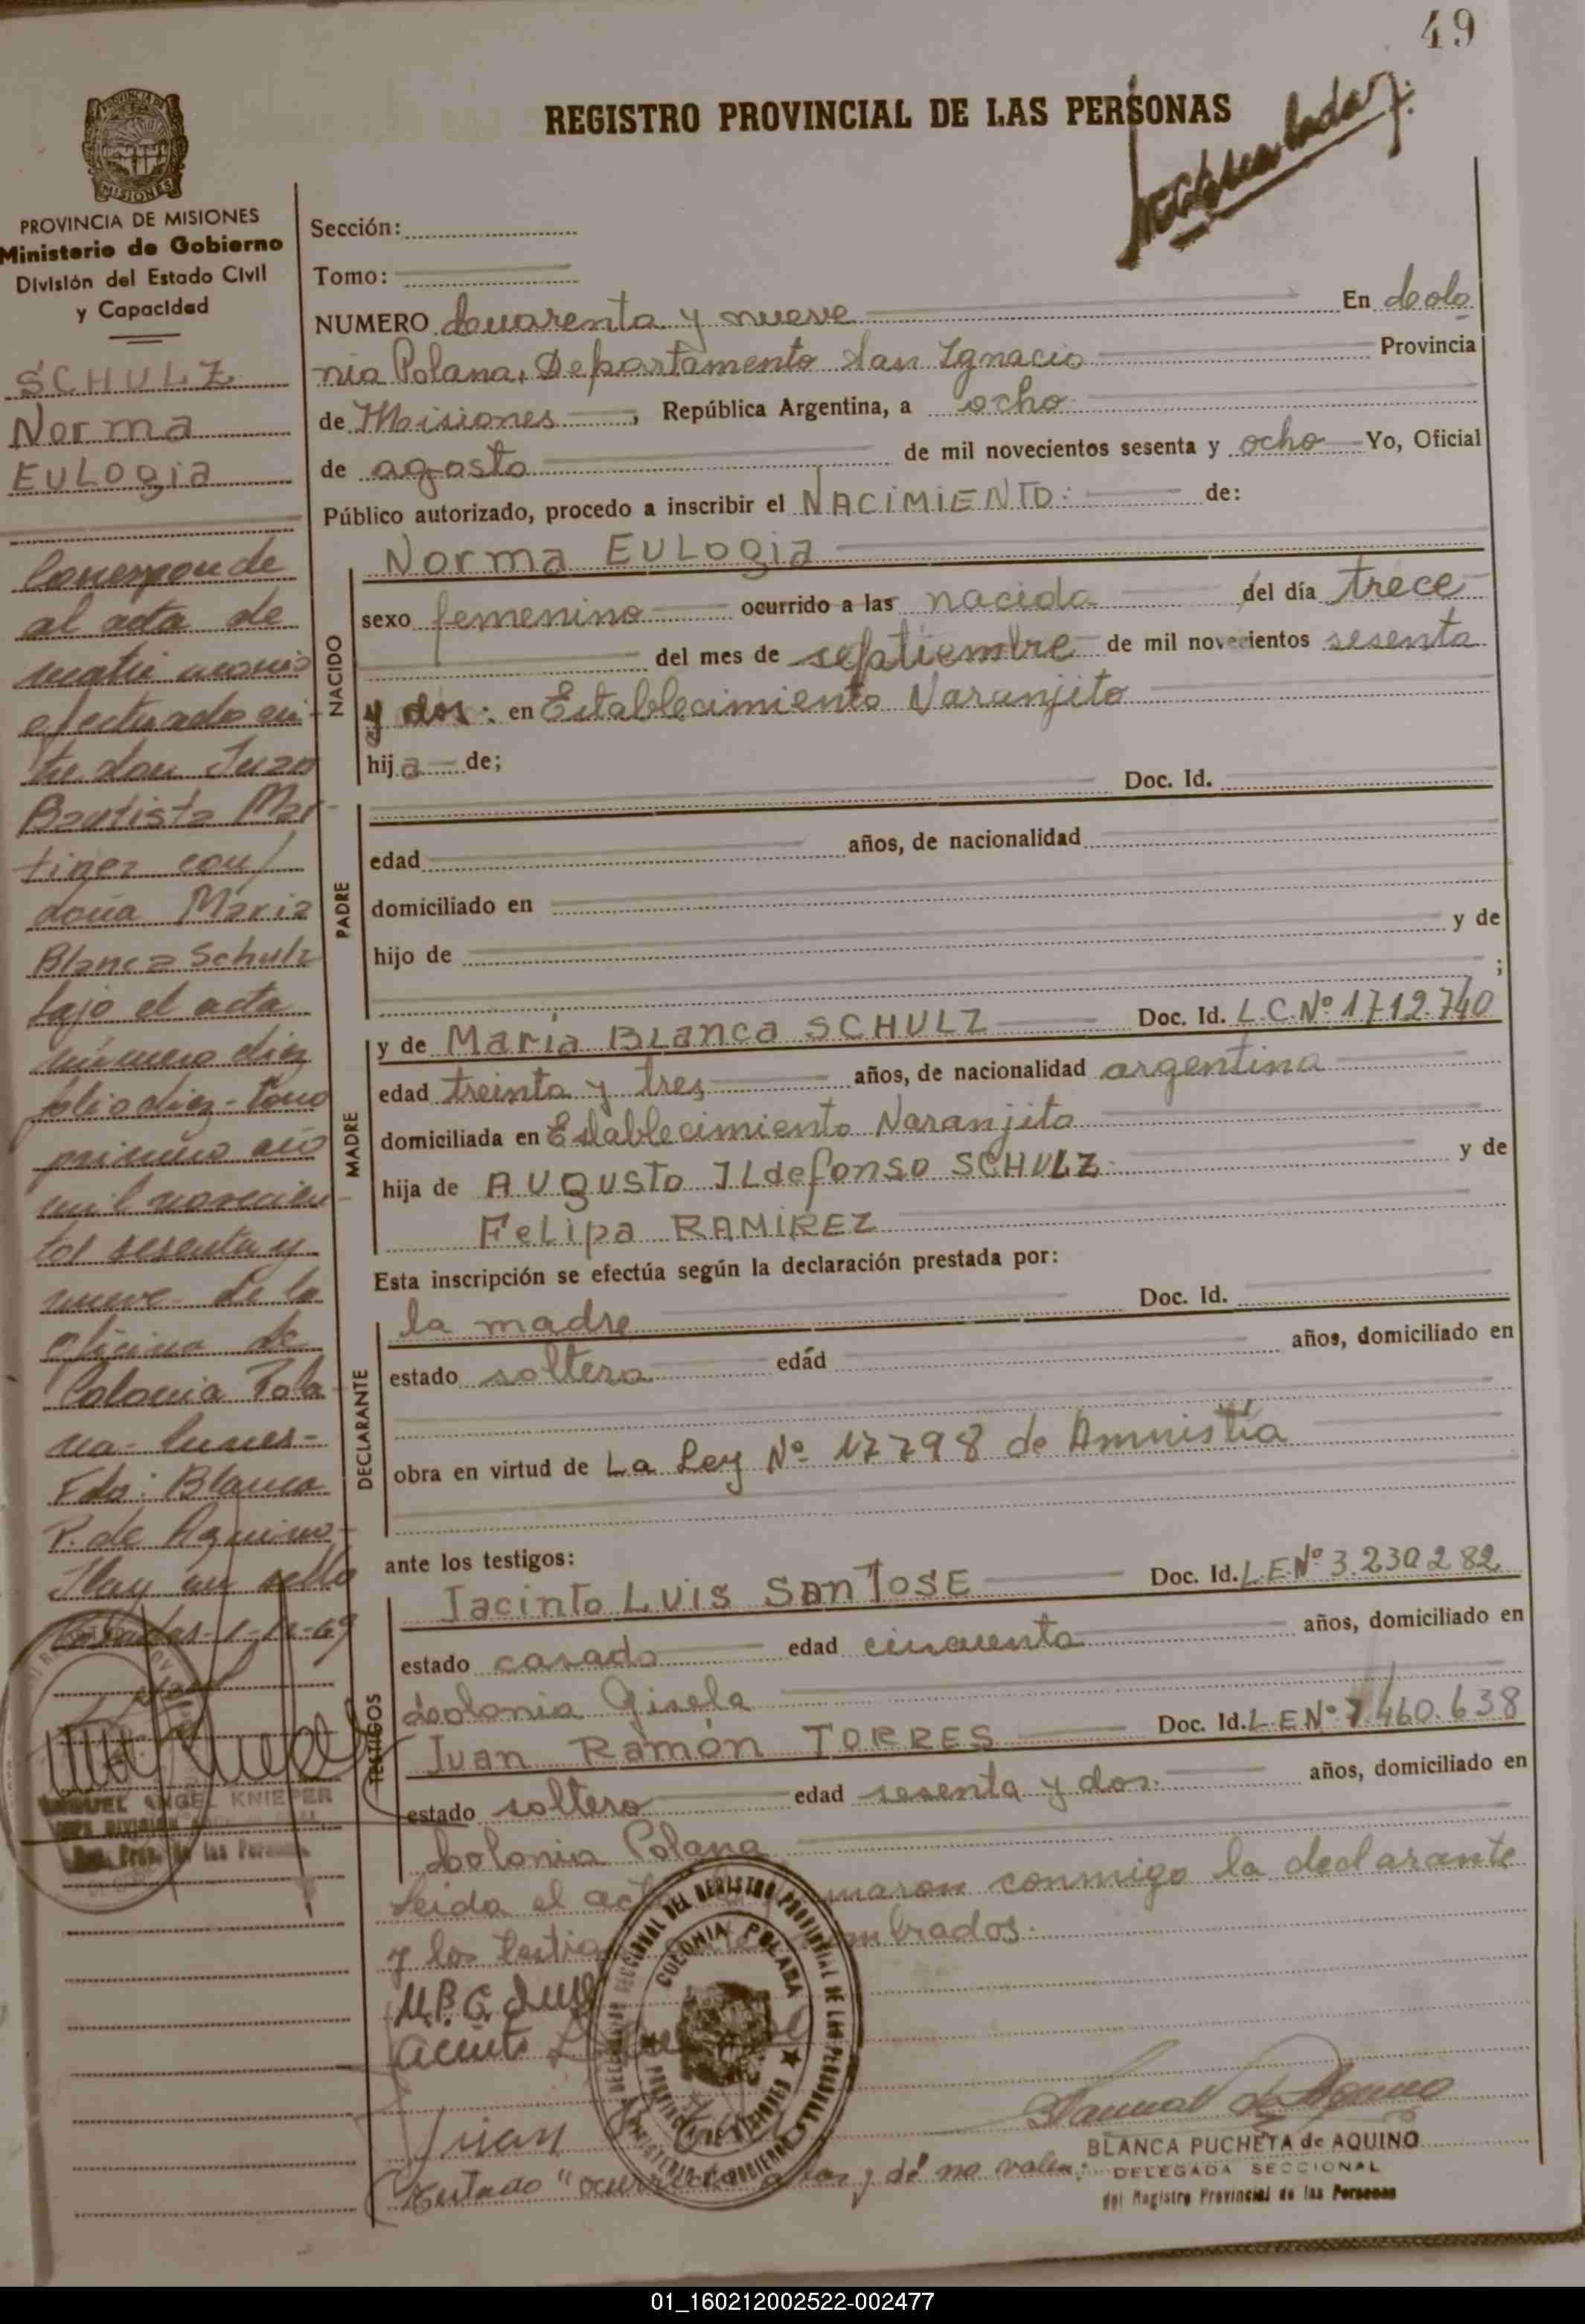 49
REGISTRO PROVINCIAL DE LAS PERSONAS
PROVINCIA DE MISIONES
Ministerio de Gobierno
División del Estado Civil
y Capacidad
SCHULZ
Norma
EULogia
Corresponde
al acta de
matri monio
efectuado en
tre don Juan
Bautista Mar
tinez con
doña María
Blanca Schulz
bajo el acta
número diez
folio diez- tomo
primero año
mil novecien
tos sesenta y
nueve de la
oficina de
Colonia Pola
na-
Fdo: Blanca
P. de Aquino-
Hay un sello
Posadas-1-12-69
MIGUEL ANGEL KNIEPER
Sección:
Tomo:
NUMERO Cuarenta y nueve En Colo
nia Polana, Departamento San Ignacio Provincia
de Misiones, República Argentina, a ocho
de agosto de mil novecientos sesenta y ocho Yo, Oficial
Público autorizado, procedo a inscribir el NACIMIENTO: de:
NACIDO
Norma EULogia
sexo femenino ocurrido a las nacida del día trece
del mes de septiembre de mil novecientos sesenta
y dos: en Establecimiento Naranjito
hija de;
PADRE
Doc. Id.
edad años, de nacionalidad
domiciliado en
hijo de y de
;
MADRE
y de María BLanca SCHULZ Doc. Id. L.C.Nº 1712.740
edad treinta y tres años, de nacionalidad argentina
domiciliada en Establecimiento Naranjito
hija de AUgUSto ILdefonso SCHULZ y de
FeLipa RAMIREZ
Esta inscripción se efectúa según la declaración prestada por:
DECLARANTE
la madre Doc. Id.
estado soltera edad años, domiciliado en
obra en virtud de La Ley Nº 17798 de Amnistía
ante los testigos:
TESTIGOS
Jacinto LUis SanJOSE Doc. Id. L.E.Nº 3.230282
estado casado edad cincuenta años, domiciliado en
Colonia Gisela
Juan Ramón TORRES Doc. Id. L.E.Nº 7.460.638
estado soltero edad sesenta y dos. años, domiciliado en
Colonia Polana
Leida el acta conmigo la declarante
y los
DELEGACION SECCIONAL DEL REGISTRO PROVINCIAL DE LAS PERSONAS
COLONIA POLANA
PROVINCIA MISIONES
MINISTERIO DE GOBIERNO
M.B.G.
Juan
Testado "ocurrido a las y d" no valen:
BLANCA PUCHETA de AQUINO
DELEGADA SECCIONAL
del Registro Provincial de las Personas
01_160212002522-002477